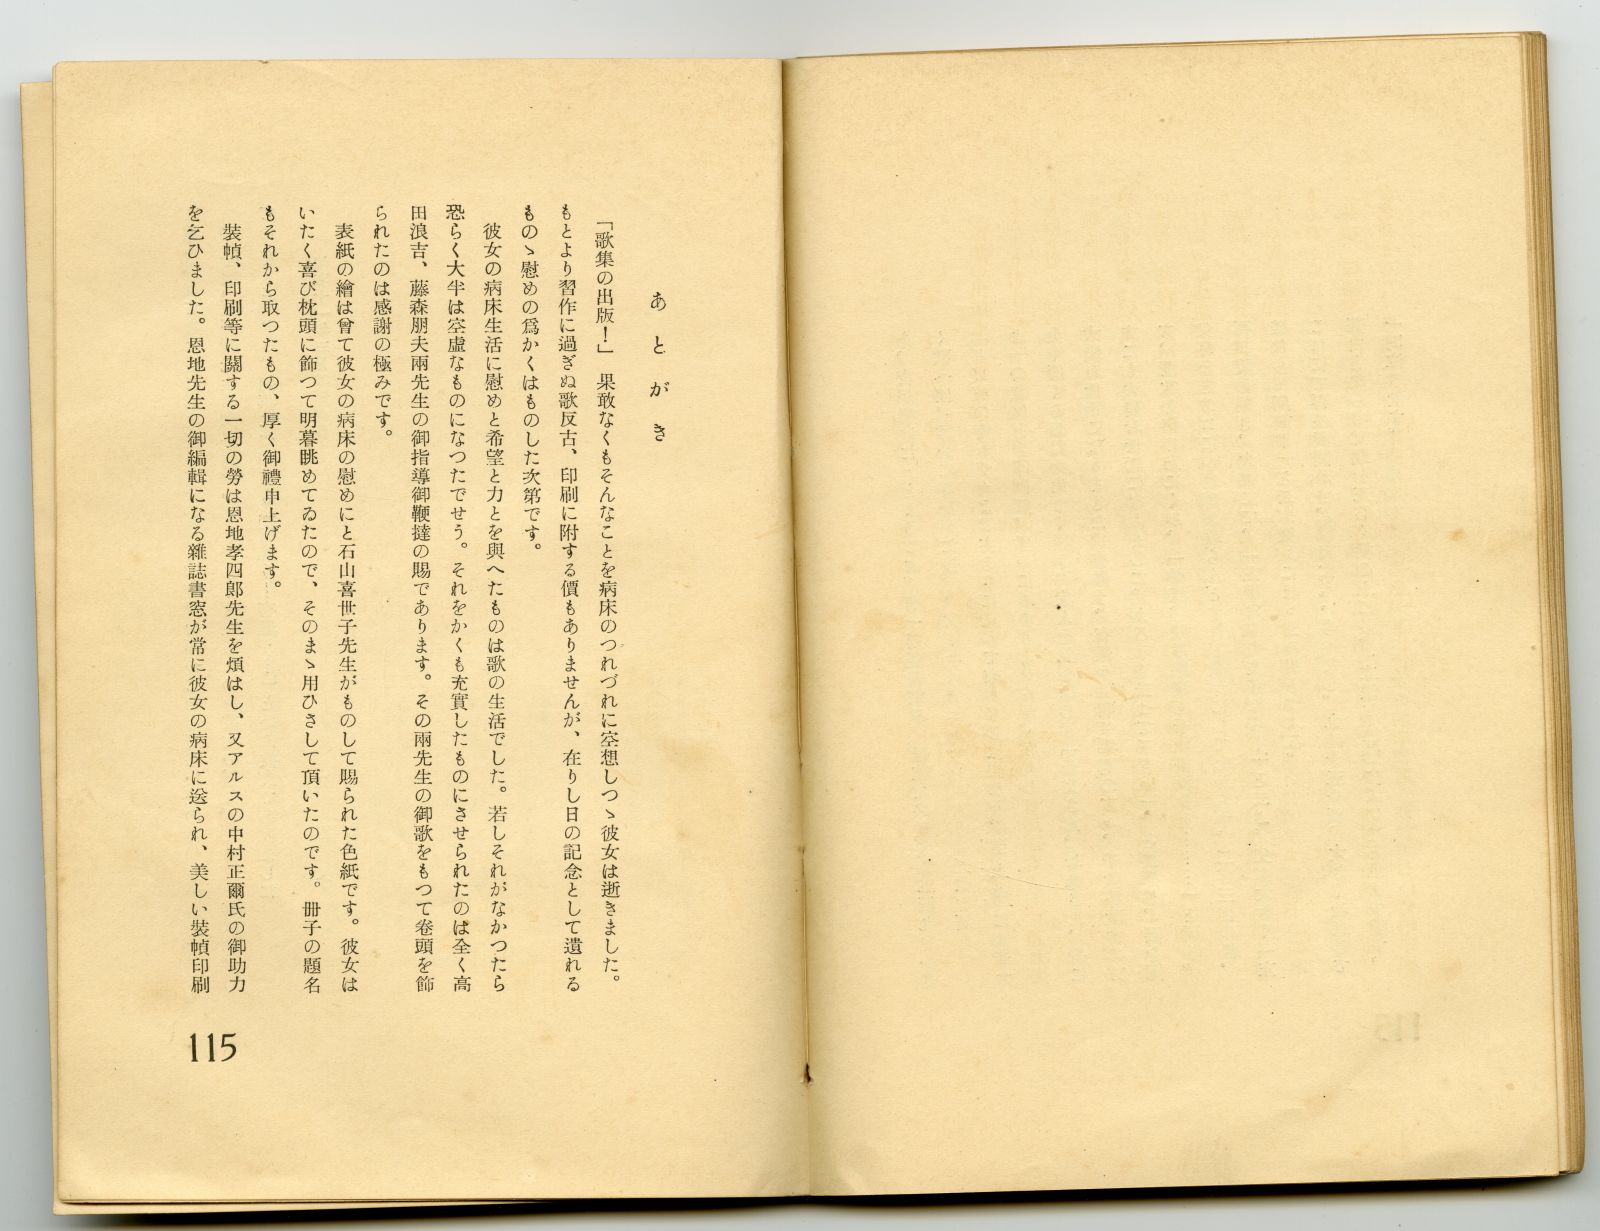 あとがき
「歌集の出版!」果敢なくもそんなことを病床のつれづれに空想しつゝ彼女は逝きました。
もとより習作に過ぎぬ歌反古、印刷に附する價もありませんが、在りし日の記念として遺れる
ものゝ慰めの爲かくはものした次第です。
彼女の病床生活に慰めと希望と力とを與へたものは歌の生活でした。若しそれがなかつたら
恐らく大半は空虛なものになつたでせう。それをかくも充實したものにさせられたのは全く高
田浪吉、藤森朋夫兩先生の御指導御鞭撻の賜であります。その兩先生の御歌をもつて卷頭を飾
られたのは感謝の極みです。
表紙の繪は曾て彼女の病床の慰めにと石山喜世子先生がものして賜られた色紙です。彼女は
いたく喜び枕頭に飾つて明暮眺めてゐたので、そのまゝ用ひさして頂いたのです。册子の題名
もそれから取つたもの、厚く御禮申上げます。
裝幀、印刷等に關する一切の勞は恩地孝四郎先生を煩はし、又アルスの中村正爾氏の御助力
を乞ひました。恩地先生の御編輯になる雜誌書窓が常に彼女の病床に送られ、美しい裝幀印刷
115